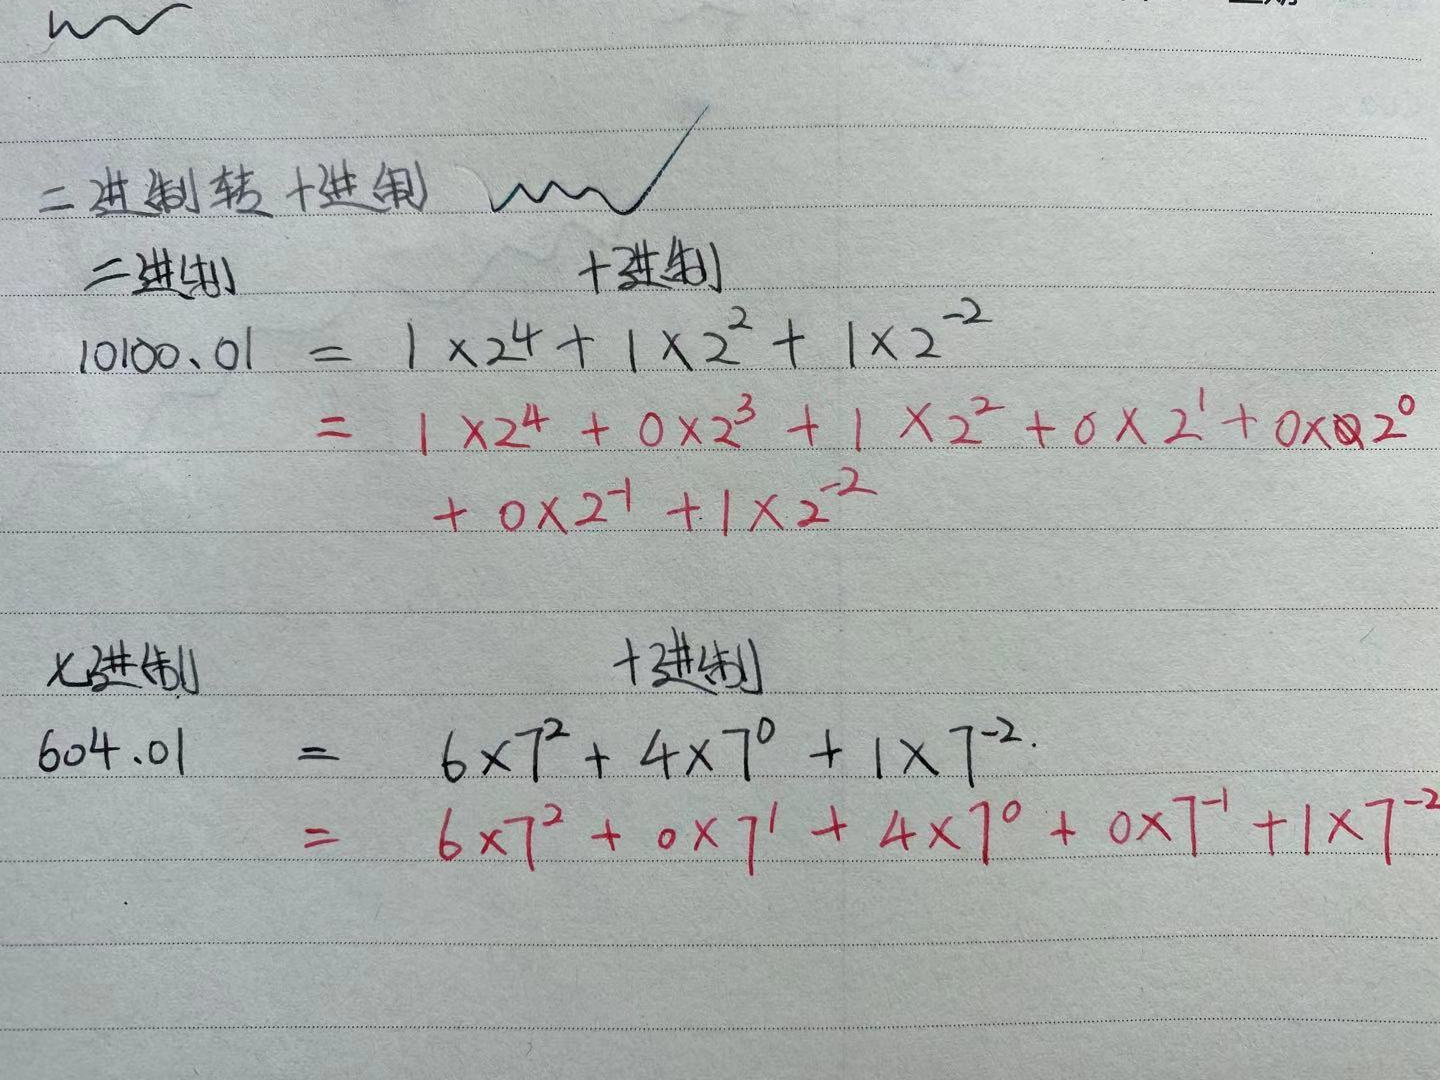 二进制转十进制
二进制 十进制
10100.01 = 1×2⁴ + 1×2² + 1×2⁻²
= 1×2⁴ + 0×2³ + 1×2² + 0×2¹ + 0×2⁰
+ 0×2⁻¹ + 1×2⁻²
x进制 十进制
604.01 = 6×7² + 4×7⁰ + 1×7⁻².
= 6×7² + 0×7¹ + 4×7⁰ + 0×7⁻¹ + 1×7⁻²